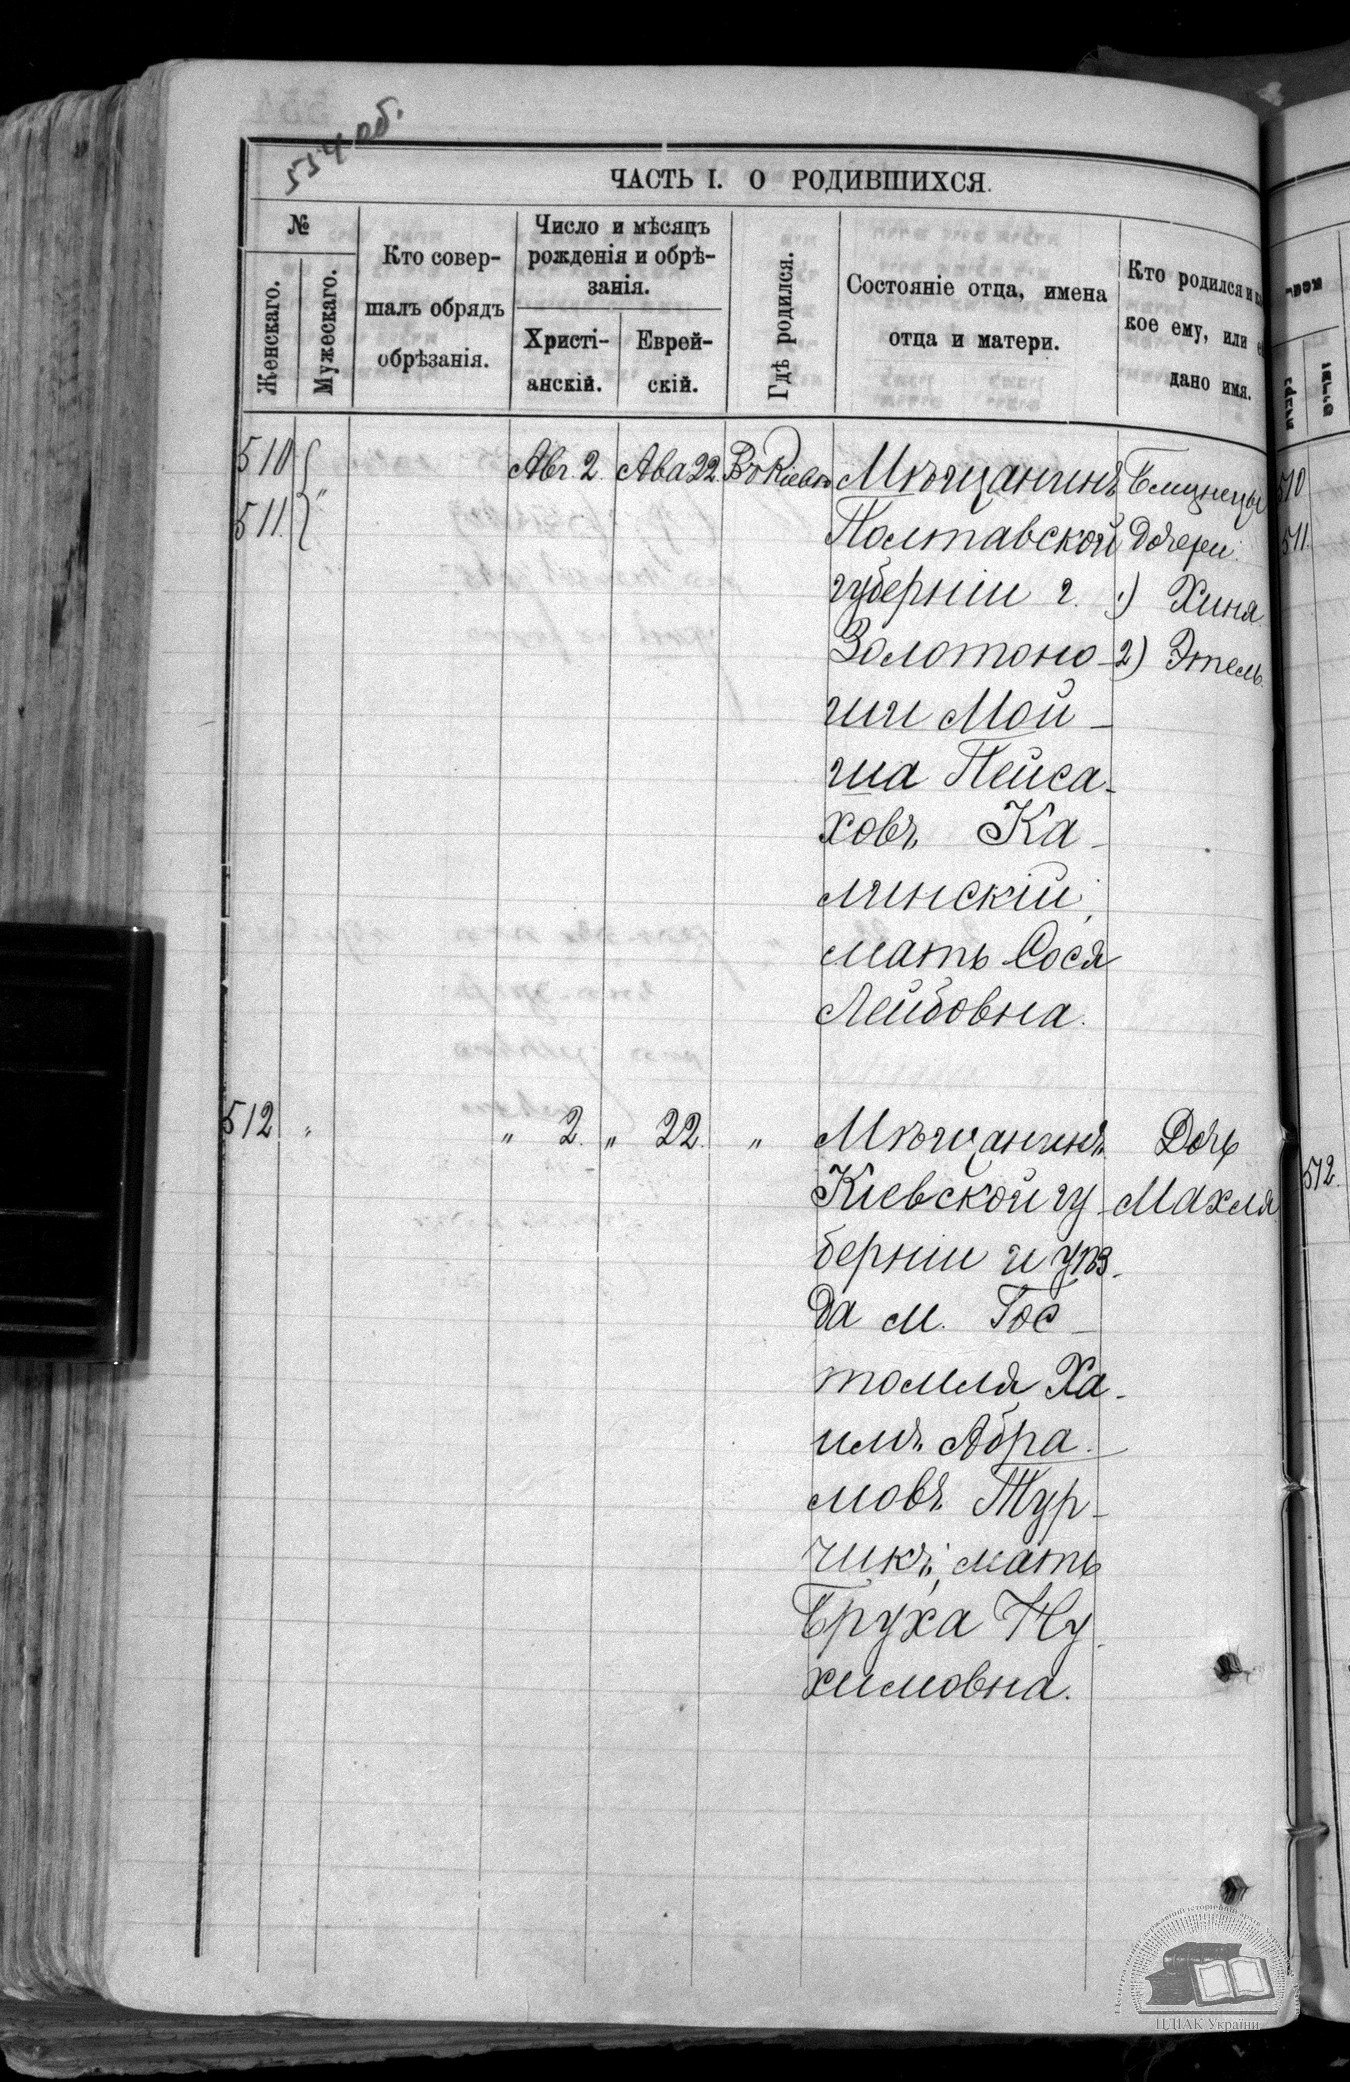 554 об.
ЧАСТЬ I. О РОДИВШИХСЯ.
№
Женскаго.
Мужескаго.
Кто совер-
шалъ обрядъ
обрѣзанія.
Число и мѣсяцъ
рожденія и обрѣ-
занія.
Христі-
анскій.
Еврей-
скій.
Гдѣ родился.
Состояніе отца, имена
отца и матери.
Кто родился и
кое ему, или
дано имя.
510
511.
"
Авг. 2.
Ава 22.
Въ Кіевѣ
Мѣщанинъ
Полтавской
губерніи г.
Золотоно-
ши Мой-
ша Пейса-
ховъ Ка-
линскій,
мать Сося
Лейбовна.
Близнецы
дочери:
1) Хиня.
2) Этель.
510
511.
512
"
" 2.
" 22.
"
Мѣщанинъ
Кіевской гу-
берніи и уѣз-
да м. Гос-
томля, Ха-
имъ Абра-
мовъ Тур-
чикъ, мать
Бруха Ну-
химовна.
Дочь
Махля.
512.
Центральний державний історичний архів
ЦДІАК України